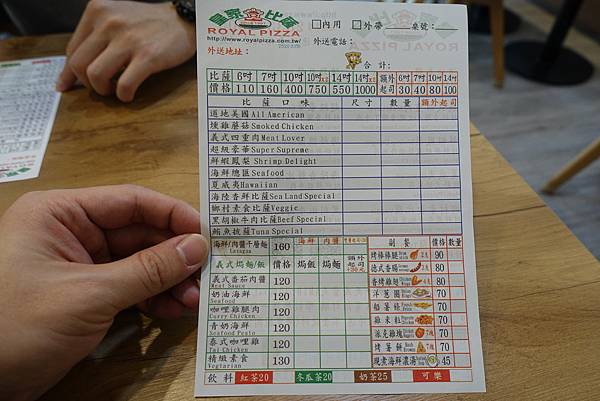 皇家比薩
ROYAL PIZZA
http://www.royalpizza.com.tw/
□內用 □外帶 桌號：
外送電話：
外送地址：
合計：
比薩 6吋 7吋 10吋 10吋×2 14吋 14吋×2 額外 6吋 7吋 10吋 14吋
價格 110 160 400 750 550 1000 起司 30 40 80 100
比薩口味 尺寸 數量 額外起司
道地美國All American
燻雞蘑菇Smoked Chicken
義式四重肉Meat Lover
超級豪華Super Supreme
鮮蝦鳳梨 Shrimp Delight
海鮮總匯Seafood
夏威夷Hawaiian
海陸香鮮比薩Sea Land Special
鄉村素食比薩Veggie
黑胡椒牛肉比薩Beef Special
鮪魚披薩Tuna Special
海鮮/肉醬千層麵 160 海鮮 肉醬
Lazagna
義式焗麵/飯 價格 焗飯 焗麵 額外起司+30元
義式蕃茄肉醬 120
Meat Sauce
奶油海鮮 120
Seafood
咖哩雞腿肉 120
Curry Chicken
青奶海鮮 120
Seafood Pesto
泰式咖哩雞 120
Tai Chicken
精緻素食 130
Vegtarian
副餐 價格 數量
烤棒棒腿 90
德式香腸 80
香烤雞翅 80
洋蔥圈 70
薯條 70
雞米粒 70
派克雞塊 70
烤薯餅 70
現煮海鮮濃湯 45
飲料 紅茶20 冬瓜茶20 奶茶25 可樂